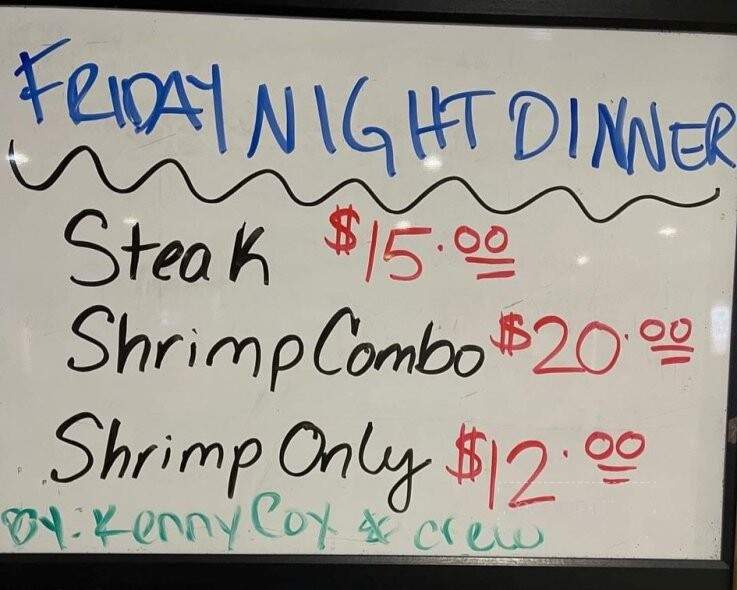 FRIDAY NIGHT DINNER
Steak $15.00
Shrimp Combo $20.00
Shrimp Only $12.00
By. Kenny Cox & crew